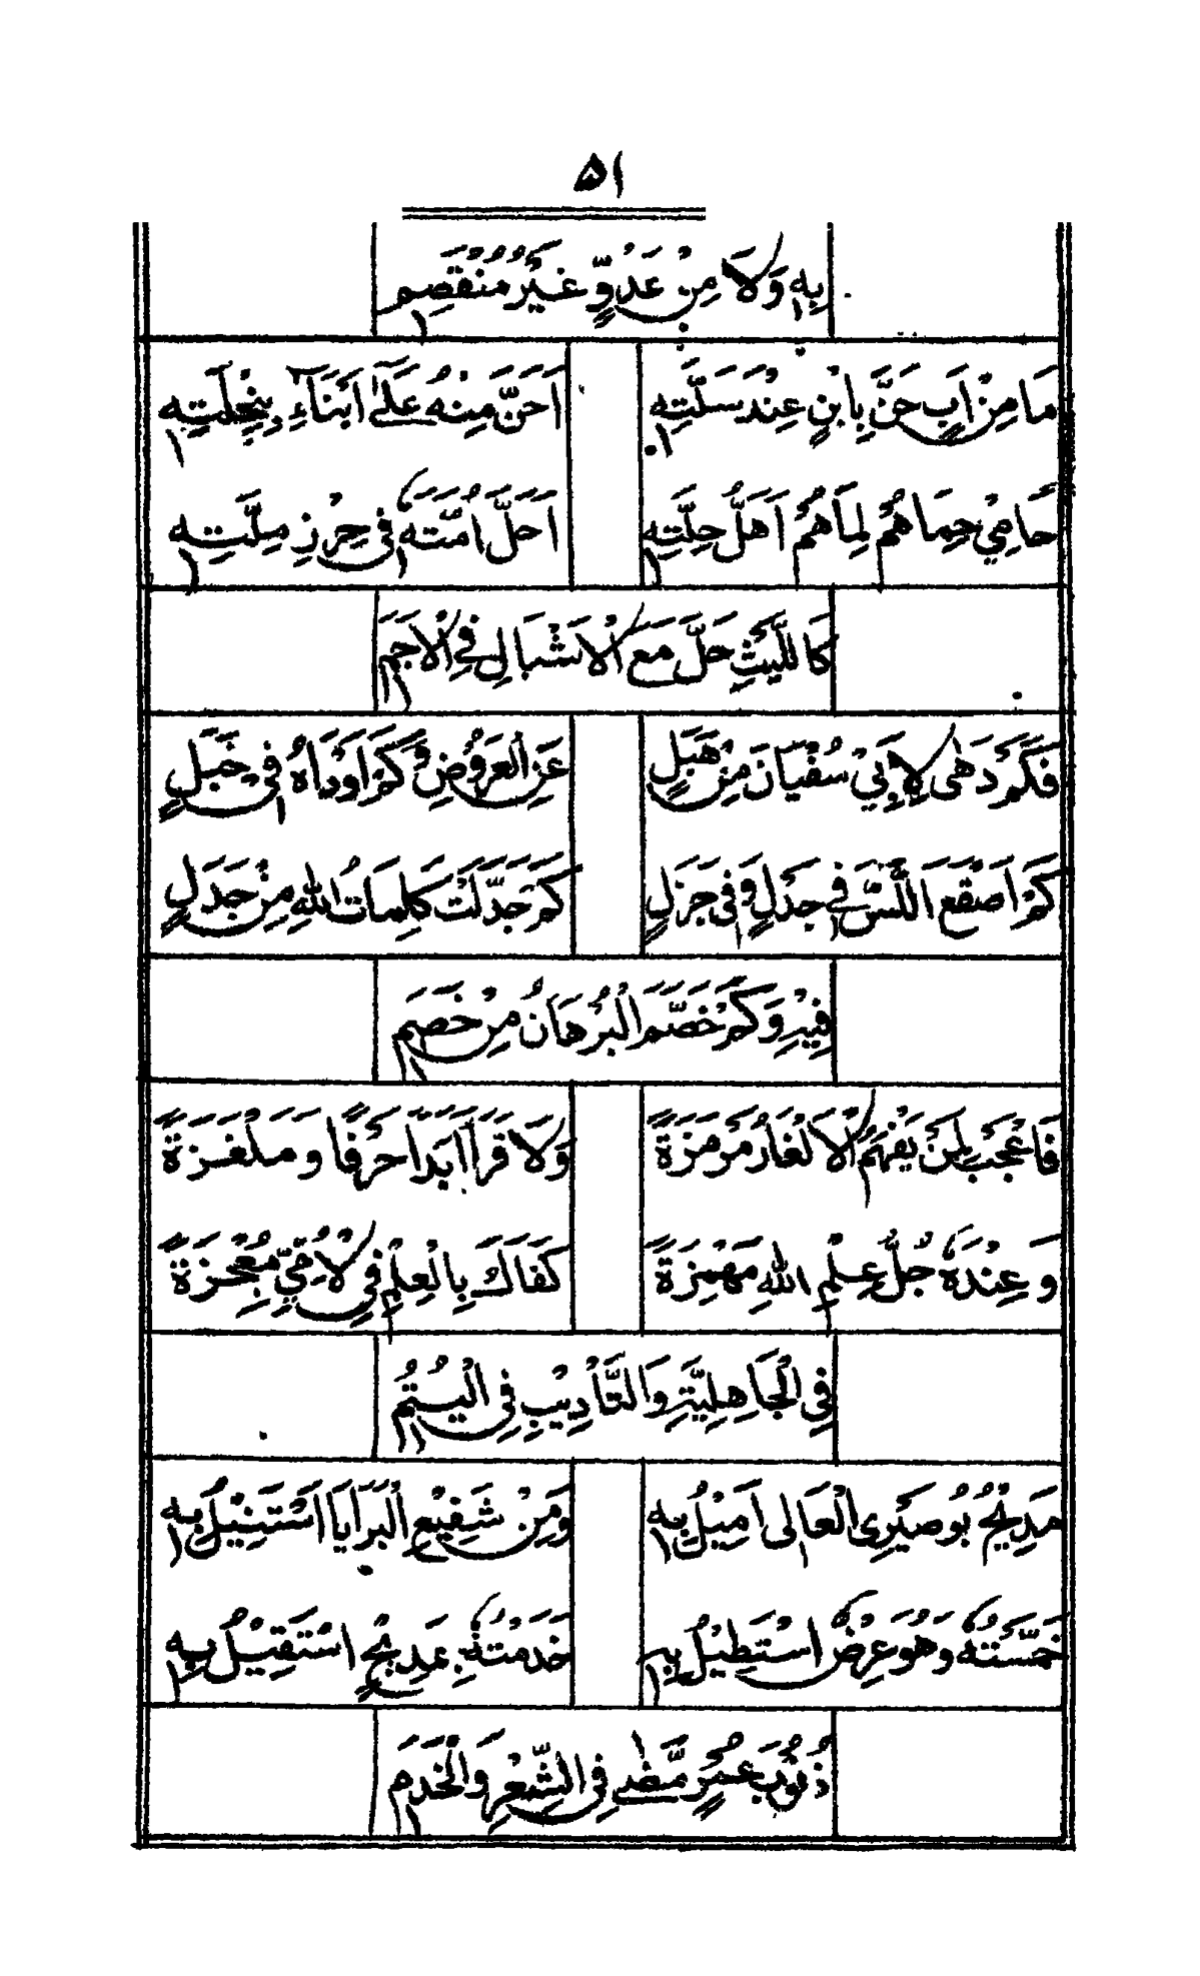 ۵۱
بِهٖ وَلَا مِنْ عَدُوٍّ غَيْرُ مُنْقَصِمٖ
مَا مِنْ اَبٍ حَنَّ بِابْنٍ عِنْدَ سَلَّتِهٖ اَحَنَّ مِنْهُ عَلٰى اَبْنَآءِ نِحْلَتِهٖ
حَامِيْ حِمَاهُمْ لِمَا هُمْ اَهْلُ حِلَّتِهٖ اَحَلَّ اُمَّتَهٗ فِيْ حِرْزِ مِلَّتِهٖ
كَاللَّيْثِ حَلَّ مَعَ الْاَشْبَالِ فِي الْاَجَمٖ
فَكَمْ دَهٰى لِاَبِيْ سُفْيَانَ مِنْ هَبَلٍ عَنِ الْعَرُوْضِ وَكَمْ اَوْدَاهُ فِيْ خَبَلٍ
كَمْ اَصْقَعَ اللَّسَّ فِيْ جَدْلٍ وَّفِيْ جَزَلٍ كَمْ جَدَّلَتْ كَلِمَاتُ اللهِ مِنْ جَدَلٍ
فِيْهِ وَكَمْ خَصَّمَ الْبُرْهَانُ مِنْ خَصَمٖ
فَاعْجَبْ لِمَنْ يَفْهَمُ الْاَلْغَازَ مَرْمَزَةً وَلَا قَرَأَ اَبَدًا حَرْفًا وَمَلْغَزَةً
وَعِنْدَهٗ جُلُّ عِلْمِ اللهِ مَهْمَزَةً كَفَاكَ بِالْعِلْمِ فِي الْاُمِّيِّ مُعْجِزَةً
فِي الْجَاهِلِيَّةِ وَالتَّأْدِيْبِ فِي الْيُتُمٖ
مَدِيْحُ بُوْصَيْرِيِ الْعَالِيْ اَمِيْلُ بِهٖ وَمِنْ شَفِيْعِ الْبَرَايَا اَسْتَنِيْلُ بِهٖ
خَمَّسْتُهٗ وَهُوَ عِرْضٌ اَسْتَطِيْلُ بِهٖ خَدَمْتُهٗ بِمَدِيْحٍ اَسْتَقِيْلُ بِهٖ
ذُنُوْبَ عُمْرٍ مَّضٰى فِي الشِّعْرِ وَالْخَدَمٖ